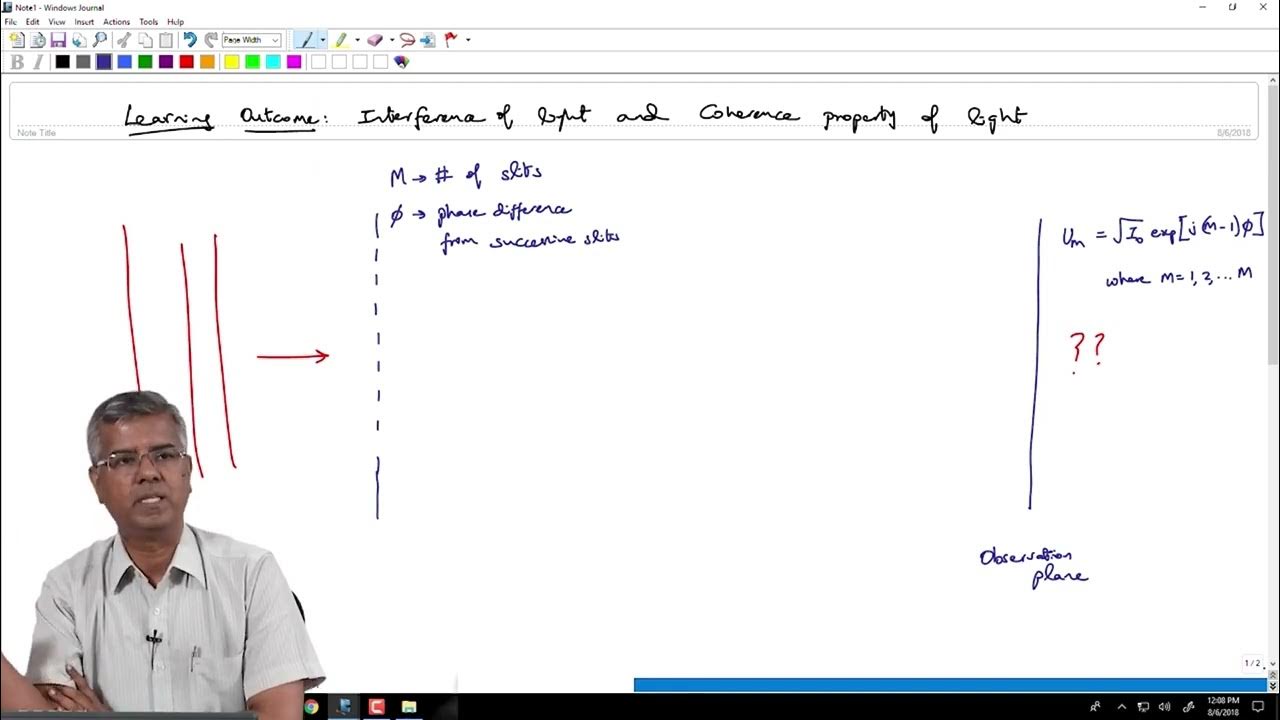 Note1 - Windows Journal
File Edit View Insert Actions Tools Help
Page Width
B I
Learning Outcome: Interference of light and Coherence property of light
Note Title
8/6/2018
M → # of slits
ϕ → phase difference
from successive slits
U_m = √I_0 exp[j(m-1)ϕ]
where m = 1, 2, ... M
??
Observation
plane
1 / 2
12:08 PM
8/6/2018